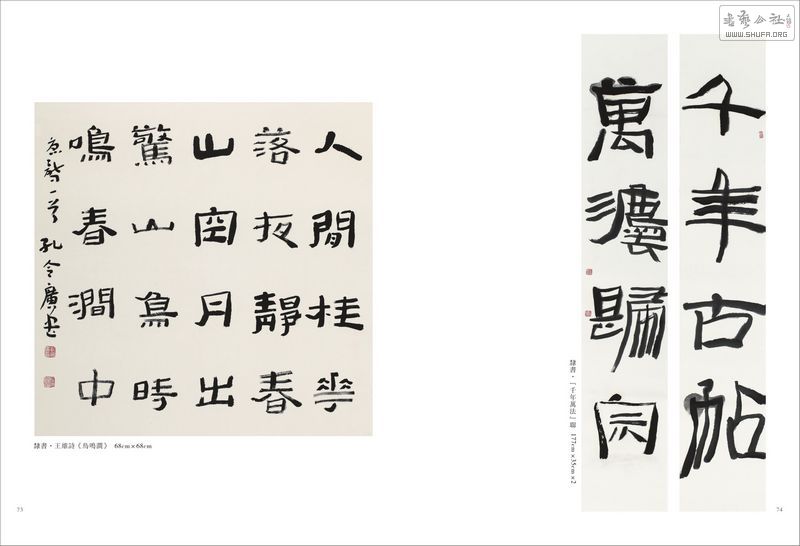 書藝公社
WWW.SHUFA.ORG
人閒桂華
落夜靜春
山空月出
驚山鳥時
鳴春澗中
唐詩一首 孔令廣書
隸書·王維詩《鳥鳴澗》 68cm×68cm
73
千年古帖
萬灋歸宗
隸書·「千年萬法」聯 177cm×35cm×2
74